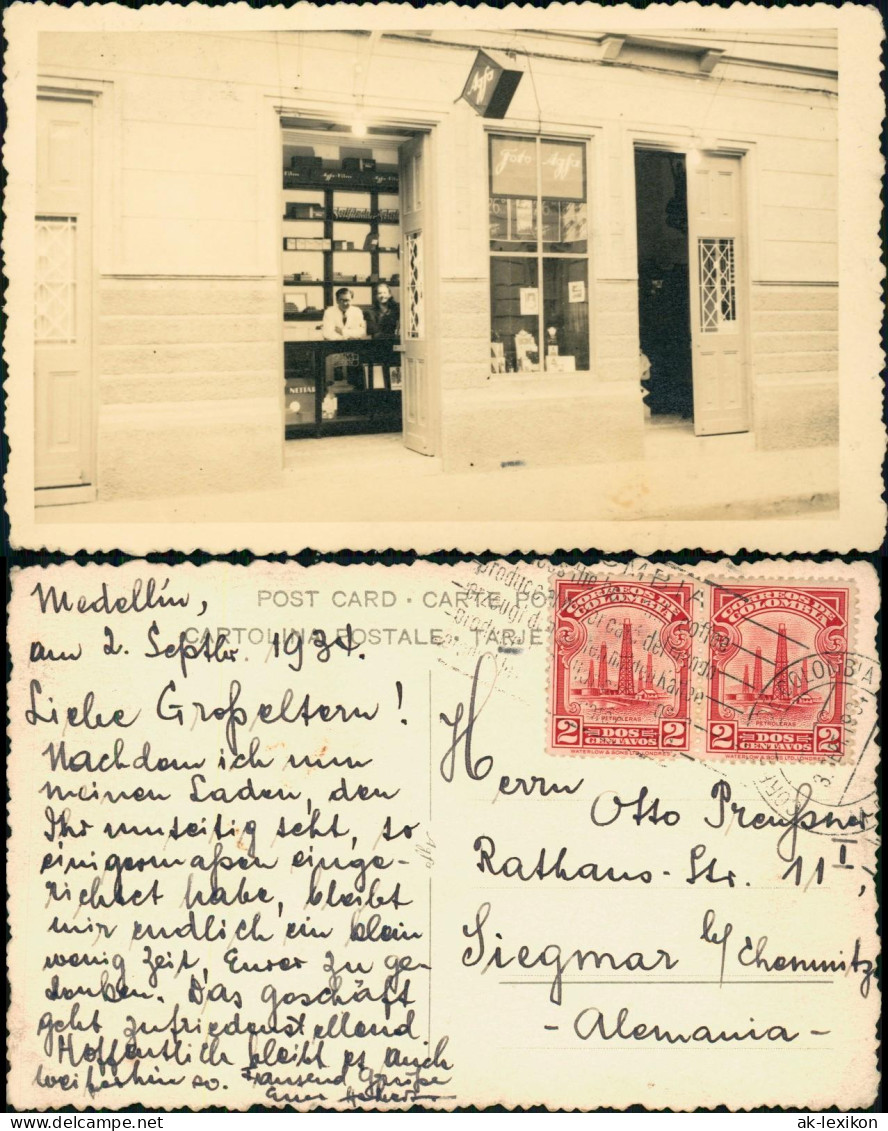 Agfa
Foto Agfa
Agfa-Film
NETTAR
Medellín,
am 2. Septbr. 1934.
Liebe Großeltern!
Nachdem ich nun
meinen Laden, den
Ihr umseitig seht, so
einigermaßen einge-
richtet habe, bleibt
mir endlich ein klein
wenig Zeit, Eurer zu ge-
denken. Das Geschäft
geht zufriedenstellend
Hoffentlich bleibt es auch
weiterhin so. Tausend Grüße
Euer
POST CARD · CARTE PO
CARTOLINA POSTALE · TARJE
CORREOS DE
COLOMBIA
PETROLERAS
2 DOS 2
CENTAVOS
WATERLOW & SONS LTD. LONDRES
CORREOS DE
COLOMBIA
PETROLERAS
2 DOS 2
CENTAVOS
WATERLOW & SONS LTD. LONDRES
COLOMBIA
Herrn
Otto Preußner
Rathaus-Str. 11 I,
Siegmar b/Chemnitz
-Alemania-
ak-lexikon.com